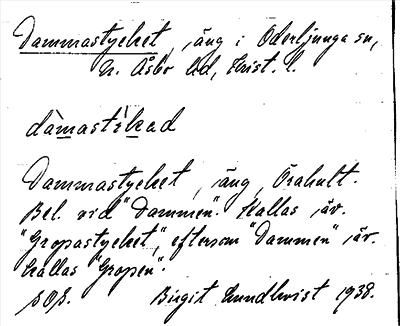 Dammastycket, äng i Oderljunga sn,
N. Åsbo hd, Krist. l.
dàmastʹikad
Dammastycket, äng, Örahult.
Bel. vid "Dammen". Kallas äv.
"Gropastycket", eftersom "Dammen" äv.
kallas "Gropen".
Birgit Lundkvist 1938.